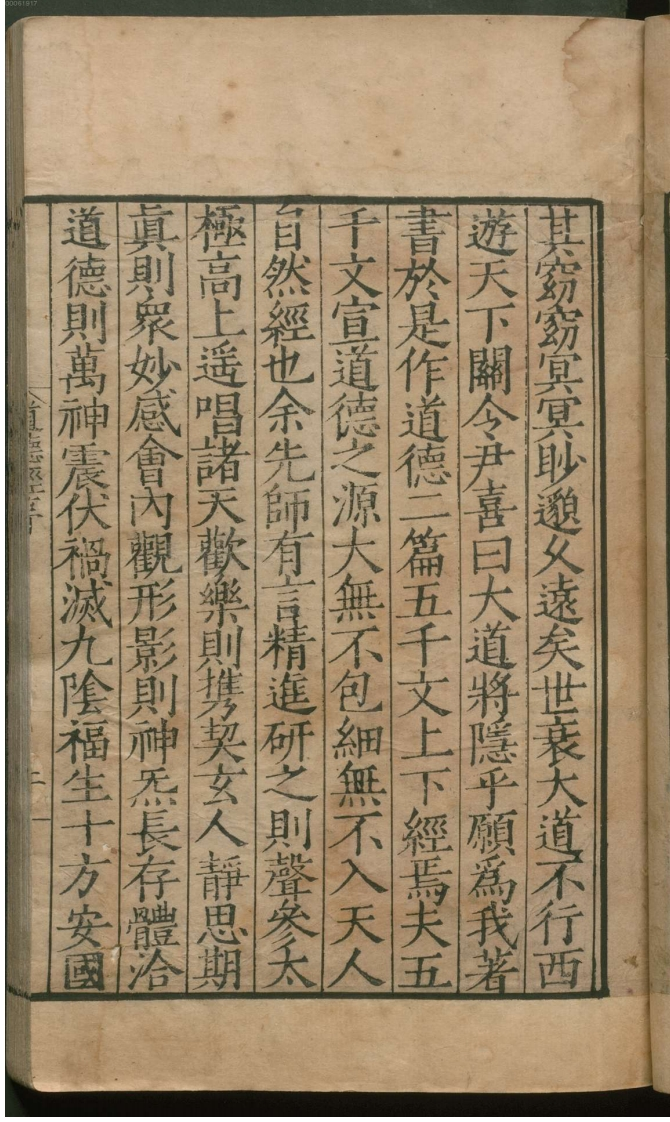 其窈窈冥冥眇邈久遠矣世衰大道不行西
遊天下關令尹喜曰大道將隱乎願爲我著
書於是作道德二篇五千文上下經焉夫五
千文宣道德之源大無不包細無不入天人
自然經也余先師有言精進研之則聲參太
極高上遥唱諸天歡樂則携契玄人靜思期
眞則衆妙感會内觀形影則神炁長存體洽
道德則萬神震伏禍滅九陰福生十方安國
道德經序
00061817